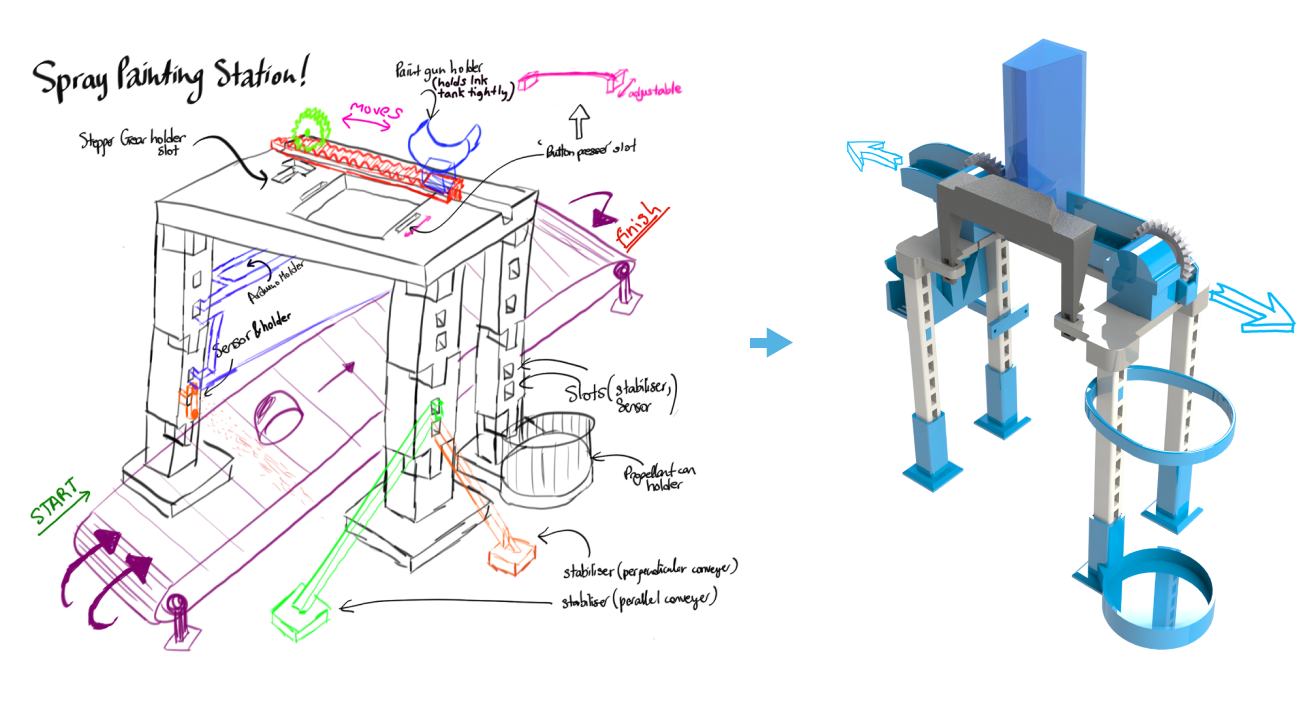 Spray Painting Station!
Paint gun holder
(holds Ink
tank tightly)
adjustable
moves
Stepper Gear holder
slot
Button presser slot
finish
Arduino Holder
Sensor & holder
Slots (stabiliser,
Sensor)
Propellant can
holder
START
stabiliser (perpendicular conveyer)
stabiliser (parallel conveyer)